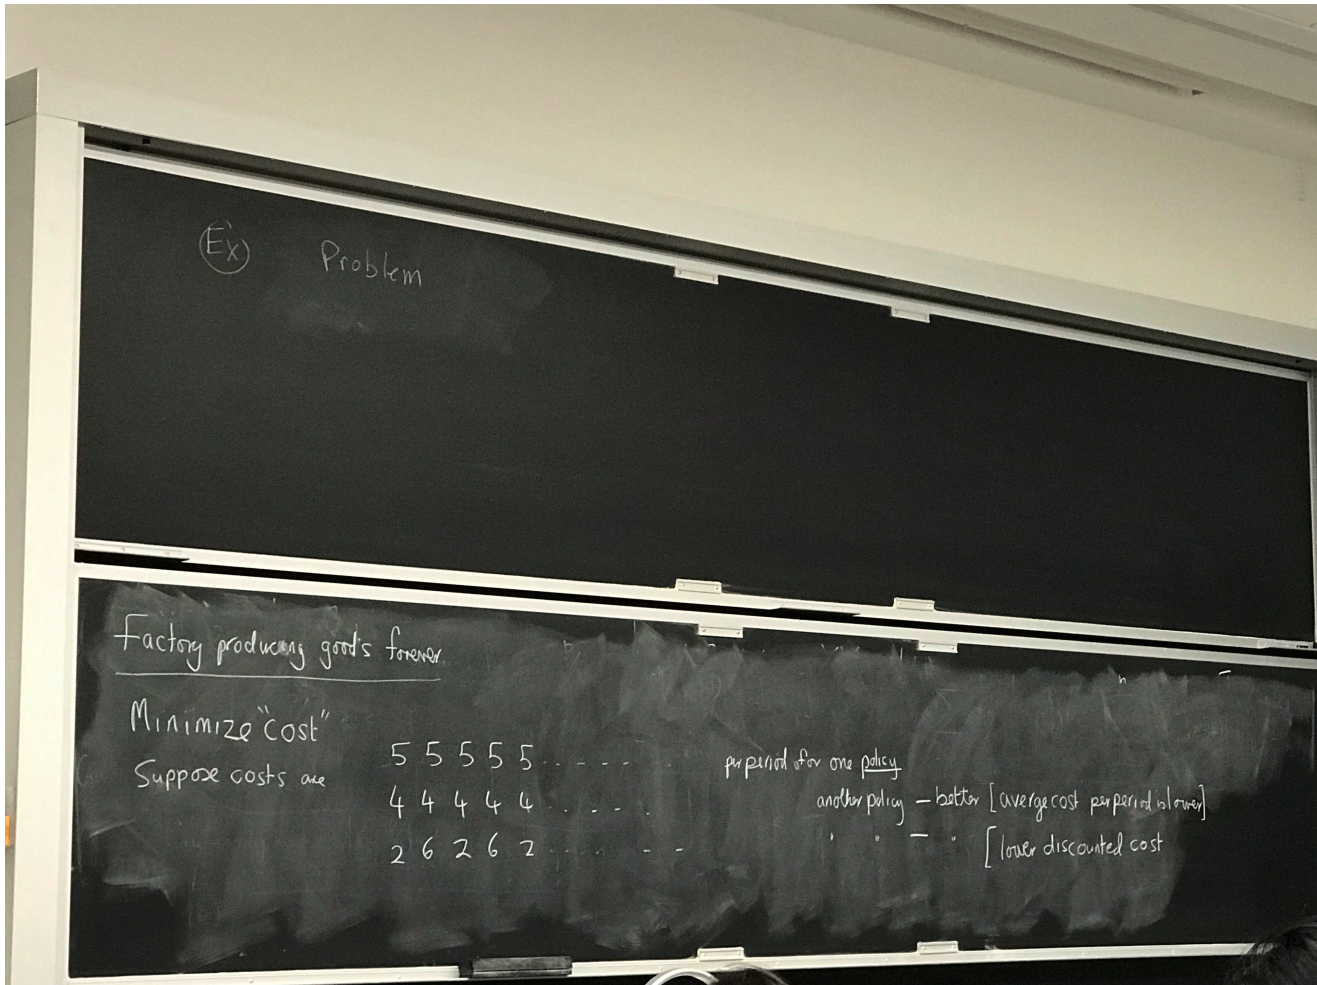 Ex Problem
Factory producing goods forever
Minimize "cost"
Suppose costs are 5 5 5 5 5 . . . . . . per period for one policy
4 4 4 4 4 . . . . another policy – better [averge cost per period is lower]
2 6 2 6 2 . . . . . . " " – " [lower discounted cost